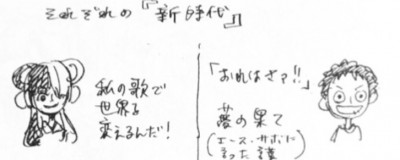 それぞれの『新時代』
私の歌で
世界を
変えるんだ！
「おれはさァ!!」
夢の果て
(エース・サボに
言った言葉)